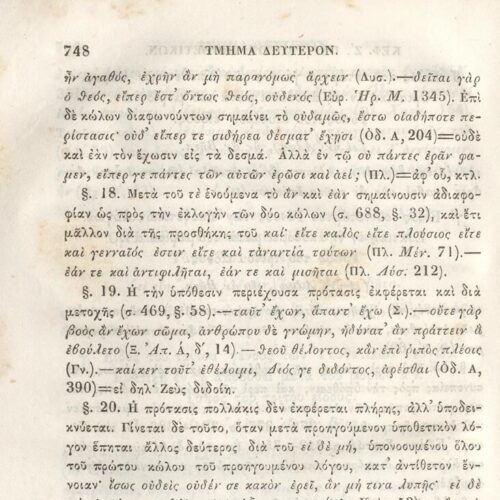 748 ΤΜΗΜΑ ΔΕΥΤΕΡΟΝ.
ἦν ἀγαθός, ἐχρῆν ἂν μὴ παρανόμως ἄρχειν (Λυσ.).—δεῖται γὰρ
ὁ θεός, εἴπερ ἔστ' ὄντως θεός, οὐδενός (Εὐρ. Ἡρ. Μ. 1345). Ἐπὶ
δὲ κώλων διαφωνούντων σημαίνει τὸ οὐδαμῶς, ἔστω οἱαδήποτε πε-
ρίστασις· οὐδ' εἴπερ τε σιδήρεα δέσματ' ἔχῃσι (Ὀδ. Α, 204)=οὐδὲ
καὶ ἐὰν τὸν ἔχωσιν εἰς τὰ δεσμά. Ἀλλὰ ἐν τῷ οὐ πάντες ἐρᾶν φα-
μεν, εἴπερ γε πάντες τῶν αὐτῶν ἐρῶσι καὶ ἀεί; (Πλ.)=ἀφ' οὗ, κτλ.
§. 18. Μετὰ τοῦ τὲ ἑνούμενα τὸ ἂν καὶ ἐὰν σημαίνουσιν ἀδιαφο-
φίαν ὡς πρὸς τὴν ἐκλογὴν τῶν δύο κώλων (σ. 688, §. 32), καὶ ἔτι
μᾶλλον διὰ τῆς προσθήκης τοῦ καί· εἴτε καλὸς εἴτε πλούσιος εἴτε
καὶ γενναῖός ἐστιν εἴτε καὶ τἀναντία τούτων (Πλ. Μέν. 71).—
ἐάν τε καὶ ἀντιφιλῆται, ἐάν τε καὶ μισῆται (Πλ. Λύσ. 212).
§. 19. Η τὴν ὑπόθεσιν περιέχουσα πρότασις ἐκφέρεται καὶ διὰ
μετοχῆς (σ. 469, §. 58).—ταῦτ' ἔχων, ἅπαντ' ἔχω (Σ.).—οὔτε γὰρ
βοὸς ἂν ἔχων σῶμα, ἀνθρώπου δὲ γνώμην, ἠδύνατ' ἂν πράττειν ἃ
ἐβούλετο (Ξ. Ἀπ. Ά, δ', 14).—θεοῦ θέλοντος, κἂν ἐπὶ ῥιπὸς πλέοις
(Γν.).—καί κεν τοῦτ' ἐθέλοιμι, Διός γε διδόντος, ἀρέσθαι (Ὀδ. Α,
390)=εἰ δηλ. Ζεὺς διδοίη.
§. 20. Η πρότασις πολλάκις δὲν ἐκφέρεται πλήρης, ἀλλ' ὑποδει-
κνύεται. Γίνεται δὲ τοῦτο, ὅταν μετὰ προηγούμενον ὑποθετικὸν λό-
γον ἕπηται ἄλλος δεύτερος διὰ τοῦ εἰ δὲ μή, ὑπονοουμένου ὅλου
τοῦ πρώτου κώλου τοῦ προηγουμένου λόγου, κατ' ἀντίθετον ἔν-
νοιαν· ἴσως οὐδεὶς οὐδέν σε κακὸν ἐρεῖ, ἂν μή τινα λυπῇς· εἰ δὲ